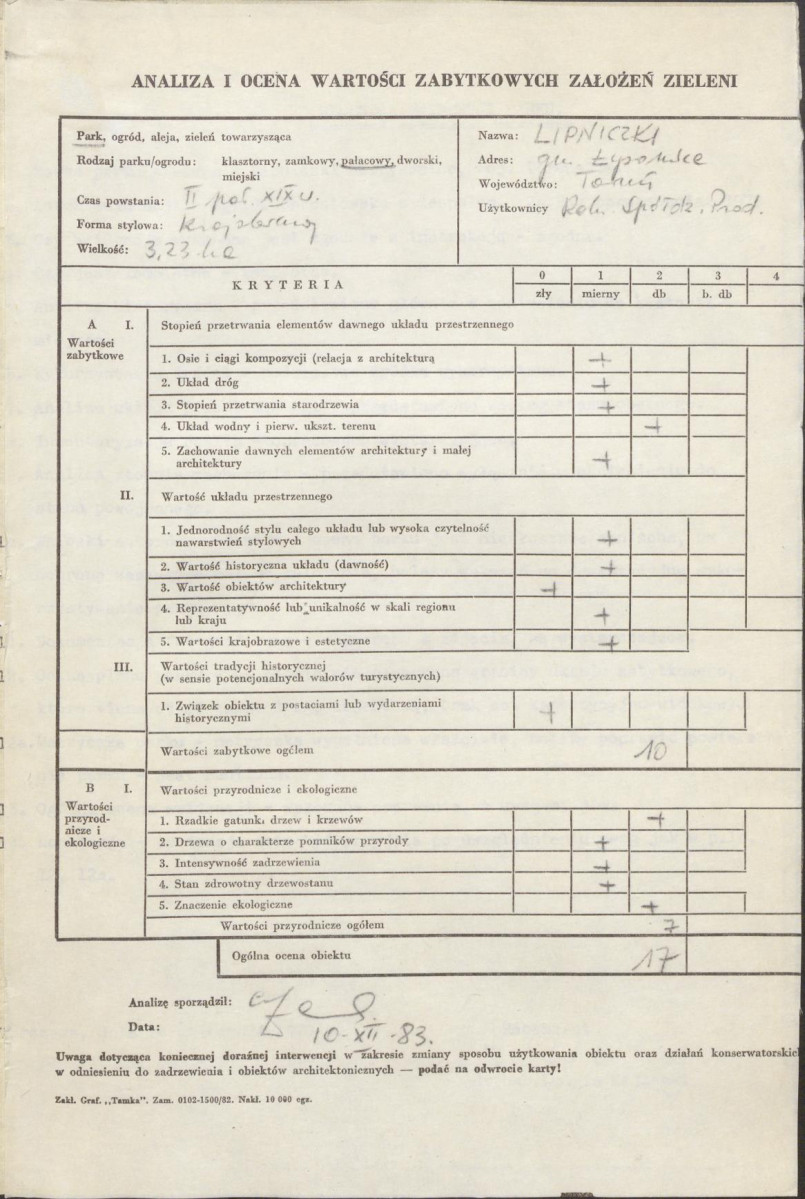 ANALIZA I OCENA WARTOŚCI ZABYTKOWYCH ZAŁOŻEŃ ZIELENI
Park, ogród, aleja, zieleń towarzysząca
Rodzaj parku/ogrodu: klasztorny, zamkowy, pałacowy, dworski,
miejski
Czas powstania: II poł. XIX w.
Forma stylowa: krajobrazowy
Wielkość: 3,23 ha
Nazwa: LIPNICZKI
Adres: gm. Łysomice
Województwo: Toruń
Użytkownicy Roln. Spółdz. Prod.
KRYTERIA
0 1 2 3 4
zły mierny db b. db
A I. Stopień przetrwania elementów dawnego układu przestrzennego
Wartości
zabytkowe
1. Osie i ciągi kompozycji (relacja z architekturą +
2. Układ dróg +
3. Stopień przetrwania starodrzewia +
4. Układ wodny i pierw. ukszt. terenu +
5. Zachowanie dawnych elementów architektury i małej
architektury +
II. Wartość układu przestrzennego
1. Jednorodność stylu całego układu lub wysoka czytelność
nawarstwień stylowych +
2. Wartość historyczna układu (dawność) +
3. Wartość obiektów architektury +
4. Reprezentatywność lub unikalność w skali regionu
lub kraju +
5. Wartości krajobrazowe i estetyczne +
III. Wartości tradycji historycznej
(w sensie potencjonalnych walorów turystycznych)
1. Związek obiektu z postaciami lub wydarzeniami
historycznymi +
Wartości zabytkowe ogółem 10
B I. Wartości przyrodnicze i ekologiczne
Wartości
przyrod-
nicze i
ekologiczne
1. Rzadkie gatunki drzew i krzewów +
2. Drzewa o charakterze pomników przyrody +
3. Intensywność zadrzewienia +
4. Stan zdrowotny drzewostanu +
5. Znaczenie ekologiczne +
Wartości przyrodnicze ogółem 7
Ogólna ocena obiektu 17
Analizę sporządził:
Data: 10-XII-83.
Uwaga dotycząca koniecznej doraźnej interwencji w zakresie zmiany sposobu użytkowania obiektu oraz działań konserwatorskich
w odniesieniu do zadrzewienia i obiektów architektonicznych — podać na odwrocie karty!
Zakł. Graf. „Tamka". Zam. 0102-1500/82. Nakł. 10 000 egz.